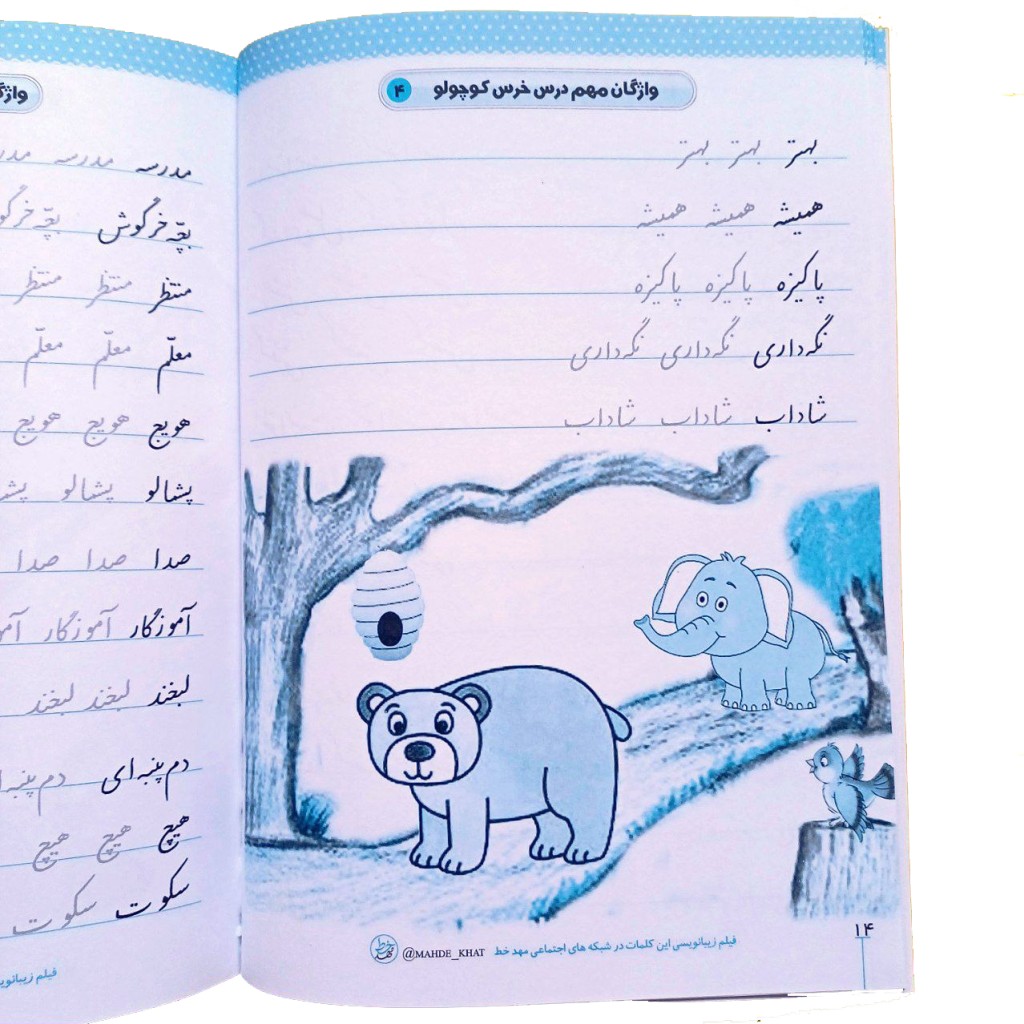 واژگان مهم درس خرس کوچولو ۴
بهتر بهتر بهتر
همیشه همیشه همیشه
پاکیزه پاکیزه پاکیزه
نگه‌داری نگه‌داری نگه‌داری
شاداب شاداب شاداب
فیلم زیبانویسی این کلمات در شبکه های اجتماعی مهد خط @MAHDE_KHAT مهد خط
۱۴
مدرسه مدرسه
بچّه خرگوش
منتظر منتظر منتظر
معلّم معلّم معلّم
هویج هویج هویج
پشمالو پشمالو
صدا صدا صدا
آموزگار آموزگار
لبخند لبخند لبخند
دم پنبه ای
هیچ هیچ هیچ
سکوت سکوت
فیلم